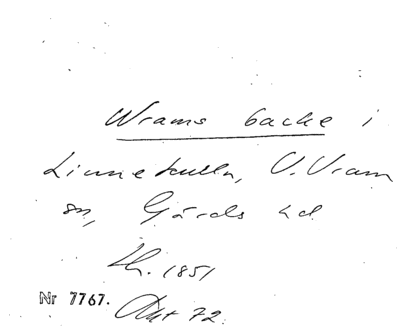 Wrams backe i
Linnekulla, V. Vram
sn, Gärds hd
Uh. 1851
Nr 7767. Akt 72.